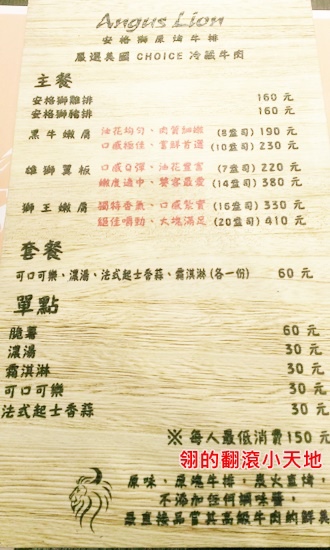 Angus Lion
安格獅原塊牛排
嚴選美國 CHOICE 冷藏牛肉
主餐
安格獅雞排 160 元
安格獅豬排 160 元
黑牛嫩肩 油花均勻、肉質細嫩 (8盎司) 190 元
口感極佳、嘗鮮首選 (10盎司) 230 元
雄獅翼板 口感Q彈、油花豐富 (7盎司) 220 元
嫩度適中、饕客最愛 (14盎司) 380 元
獅王嫩肩 獨特香氣、口感紮實 (16盎司) 330 元
絕佳嚼勁、大塊滿足 (20盎司) 410 元
套餐
可口可樂、濃湯、法式起士香蒜、霜淇淋 (各一份) 60 元
單點
脆薯 60 元
濃湯 30 元
霜淇淋 30 元
可口可樂 30 元
法式起士香蒜 30 元
※ 每人最低消費150元
翎的翻滾小天地
原味，原塊牛排，炭火直烤，
不添加任何調味醬，
最直接品嘗其高級牛肉的鮮美